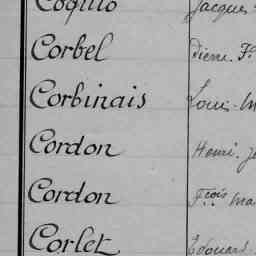 Coquio Jacques
Corbel Pierre. Fs
Corbinais Louis. M
Cordon Henri. J
Cordon Fçois Ma
Corlet Edouard.